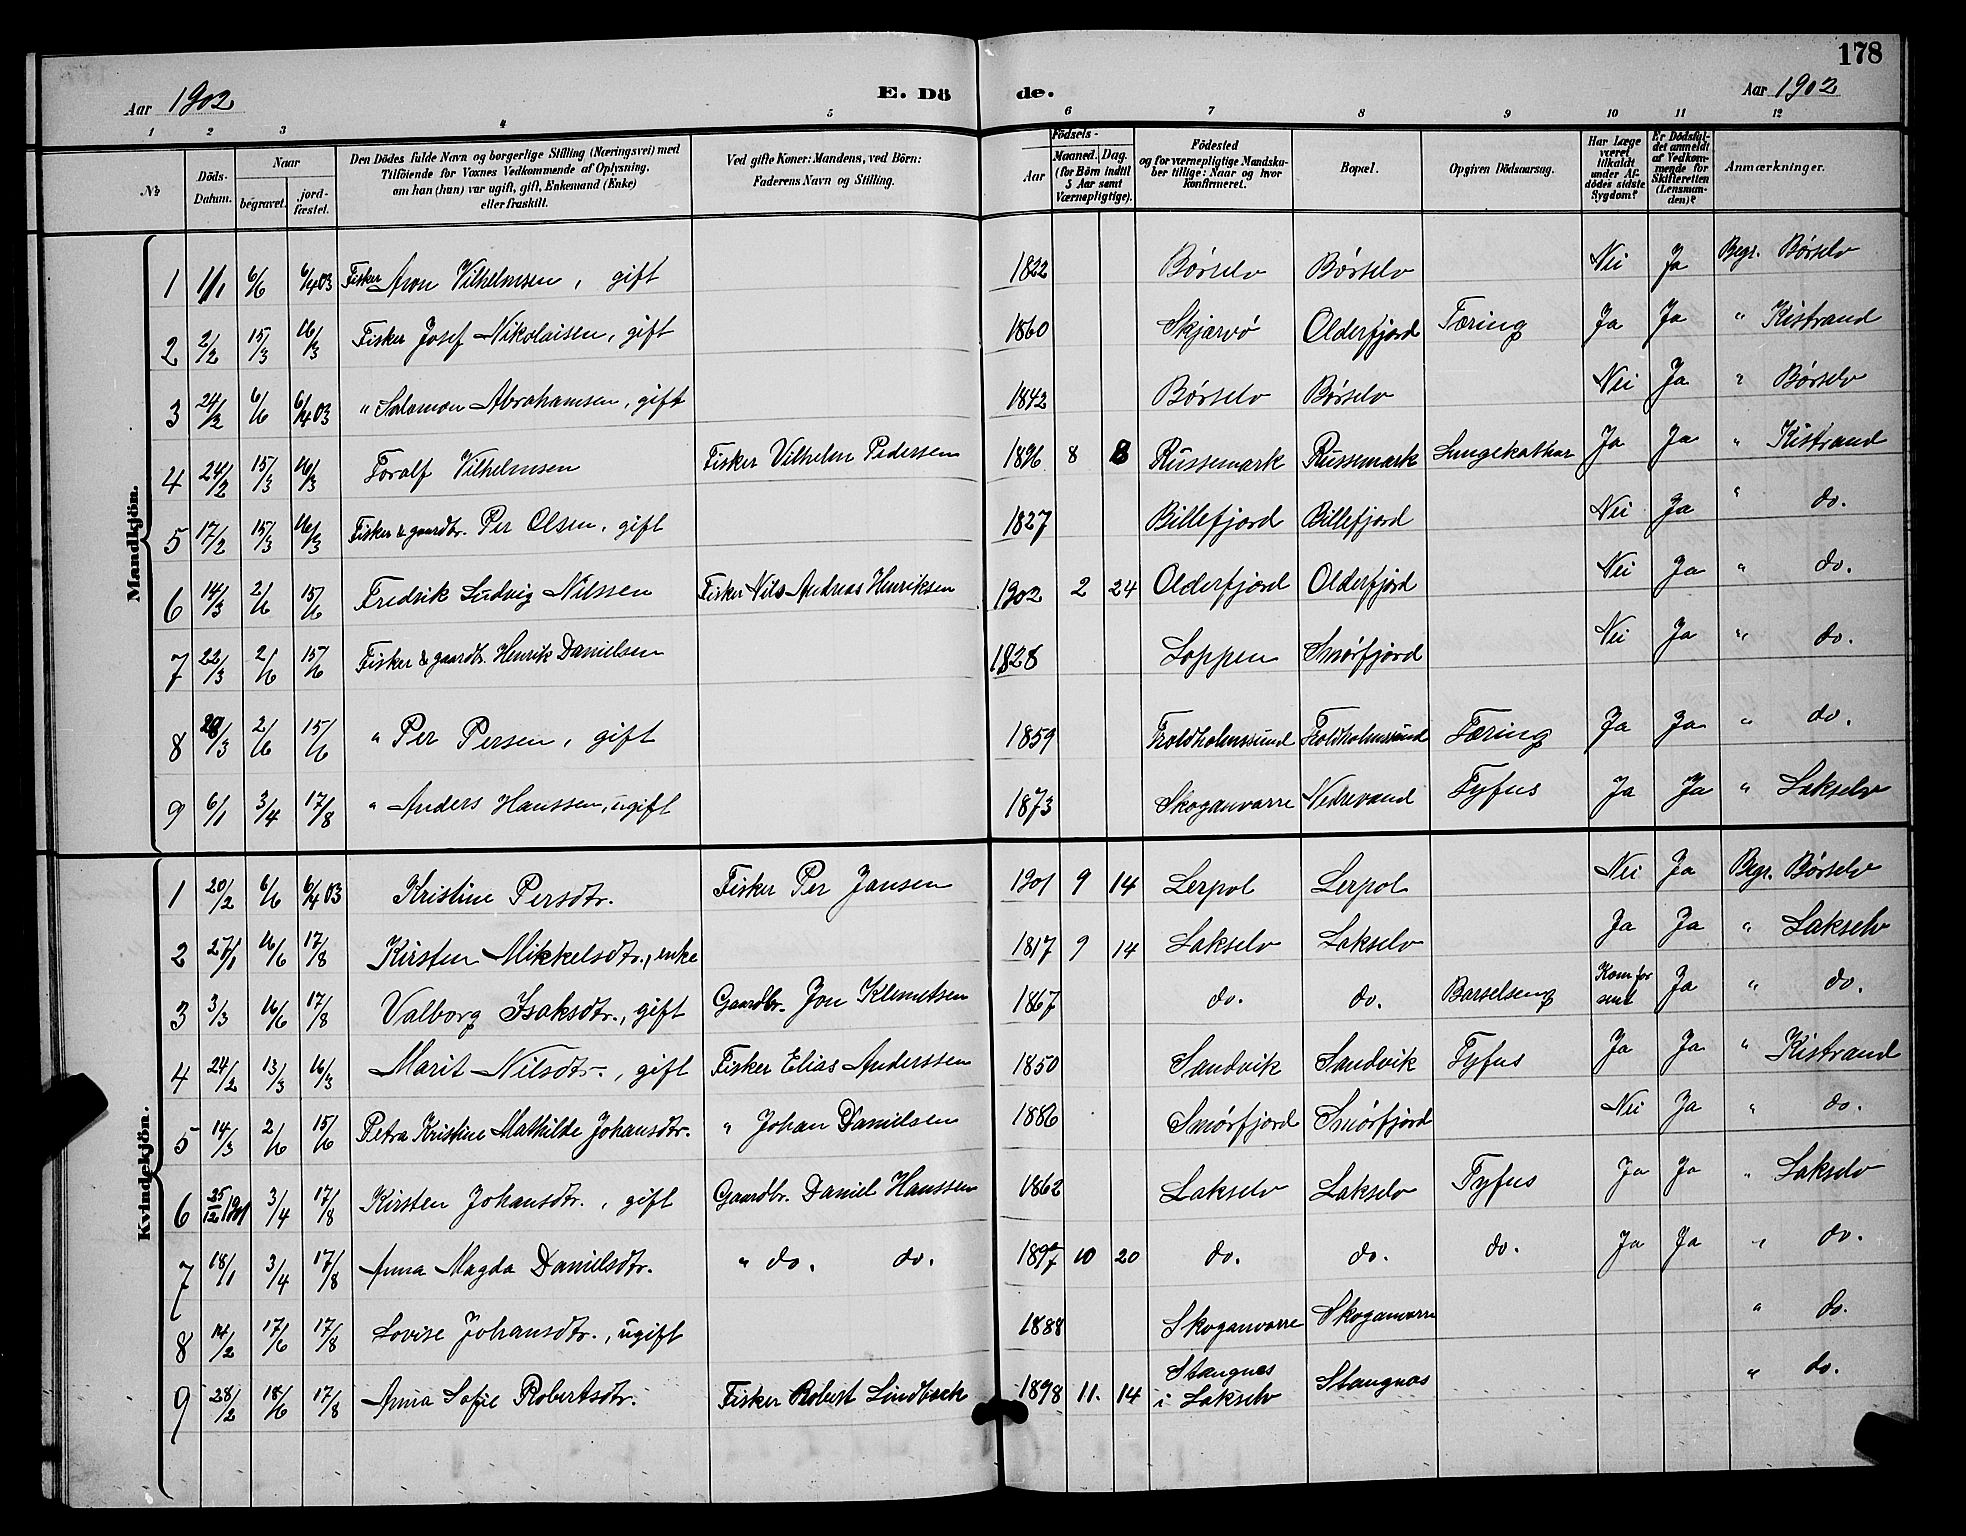 178
Aar 1902 E. Dö de. Aar 1902
1 2 3 4 5 6 7 8 9 10 11 12
№ Döds-Datum. Naar begravet. jord-fæstet. Den Dödes fulde Navn og borgerlige Stilling (Næringsvei) med Tilföiende for Voxnes Vedkommende af Oplysning, om han (hun) var ugift, gift, Enkemand (Enke) eller fraskilt. Ved gifte Koner: Mandens, ved Börn: Faderens Navn og Stilling. Födsels- Aar Maaned. Dag. (for Börn indtil 5 Aar samt Værnepligtige). Födested og for værnepligtige Mandskaber tillige: Naar og hvor konfirmeret. Bopæl. Opgiven Dödsaarsag. Har Læge været tilkaldt under Afdödes sidste Sygdom? Er Dödsfaldet anmeldt af Vedkommende for Skifteretten (Lensmanden)? Anmærkninger.
Mandkjön.
1 1/1 6/6 6/4 03 Fisker Aron Vilhelmsen, gift 1822 Børselv Børselv Nei Ja Begr. Børselv
2 2/2 15/3 16/3 Fisker Josef Nikolaisen, gift 1860 Skjærvø Olderfjord Tæring Ja Ja " Kistrand
3 24/2 6/6 6/4 03 " Salomon Abrahamsen, gift 1842 Børselv Børselv Nei Ja " Børselv
4 24/2 15/3 16/3 Toralf Vilhelmsen Fisker Vilhelm Pedersen 1896 8 8 Russemark Russemark Lungekathar Ja Ja " Kistrand
5 17/2 15/3 16/3 Fisker & gaardbr. Per Olsen, gift 1827 Billefjord Billefjord Nei Ja " do.
6 14/3 2/6 15/6 Fredrik Ludvig Nilssen Fisker Nils Andreas Henriksen 1902 2 24 Olderfjord Olderfjord Nei Ja " do.
7 22/3 2/6 15/6 Fisker & gaardb. Henrik Danielsen 1828 Loppen Smørfjord Nei Ja " do.
8 28/3 2/6 15/6 " Per Persen, gift 1859 Troldholmssund Troldholmssund Tæring Ja Ja " do.
9 6/1 3/4 17/8 " Anders Hanssen, ugift 1873 Skoganvarre Nedrevand Tyfus Ja Ja " Lakselv
Kvindekjön.
1 20/2 6/6 6/4 03 Kristine Persdtr. Fisker Per Jansen 1901 9 14 Lerpol Lerpol Nei Ja Begr. Børselv
2 27/1 16/6 17/8 Kirsten Mikkelsdtr., enke 1817 9 14 Lakselv Lakselv Ja Ja " Lakselv
3 3/3 16/6 17/8 Valborg Isaksdtr., gift Gaardbr. Jon Klemetsen 1867 do. do. Barselseng Kom for sent Ja " do.
4 24/2 13/3 16/3 Marit Nilsdtr., gift Fisker Elias Anderssen 1850 Sandvik Sandvik Tyfus Ja Ja " Kistrand
5 14/3 2/6 15/6 Petra Kristine Mathilde Johansdtr. " Johan Danielsen 1886 Smørfjord Smørfjord Nei Ja " do.
6 25/12 1901 3/4 17/8 Kirsten Johansdtr., gift Gaardbr. Daniel Hanssen 1862 Lakselv Lakselv Tyfus Ja Ja " Lakselv
7 18/1 3/4 17/8 Anna Magda Danielsdtr. " do. do. 1897 10 20 do. do. do. Ja Ja " do.
8 14/2 17/6 17/8 Lovise Johansdtr., ugift 1888 Skoganvarre Skoganvarre " do.
9 28/2 18/6 17/8 Anna Sofie Robertsdtr. Fisker Robert Lindbach 1898 11. 14 Stangnes i Lakselv Stangnes " do.